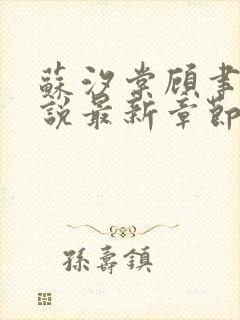 蘇汐棠顧聿
說最新章節
孫壽鎮